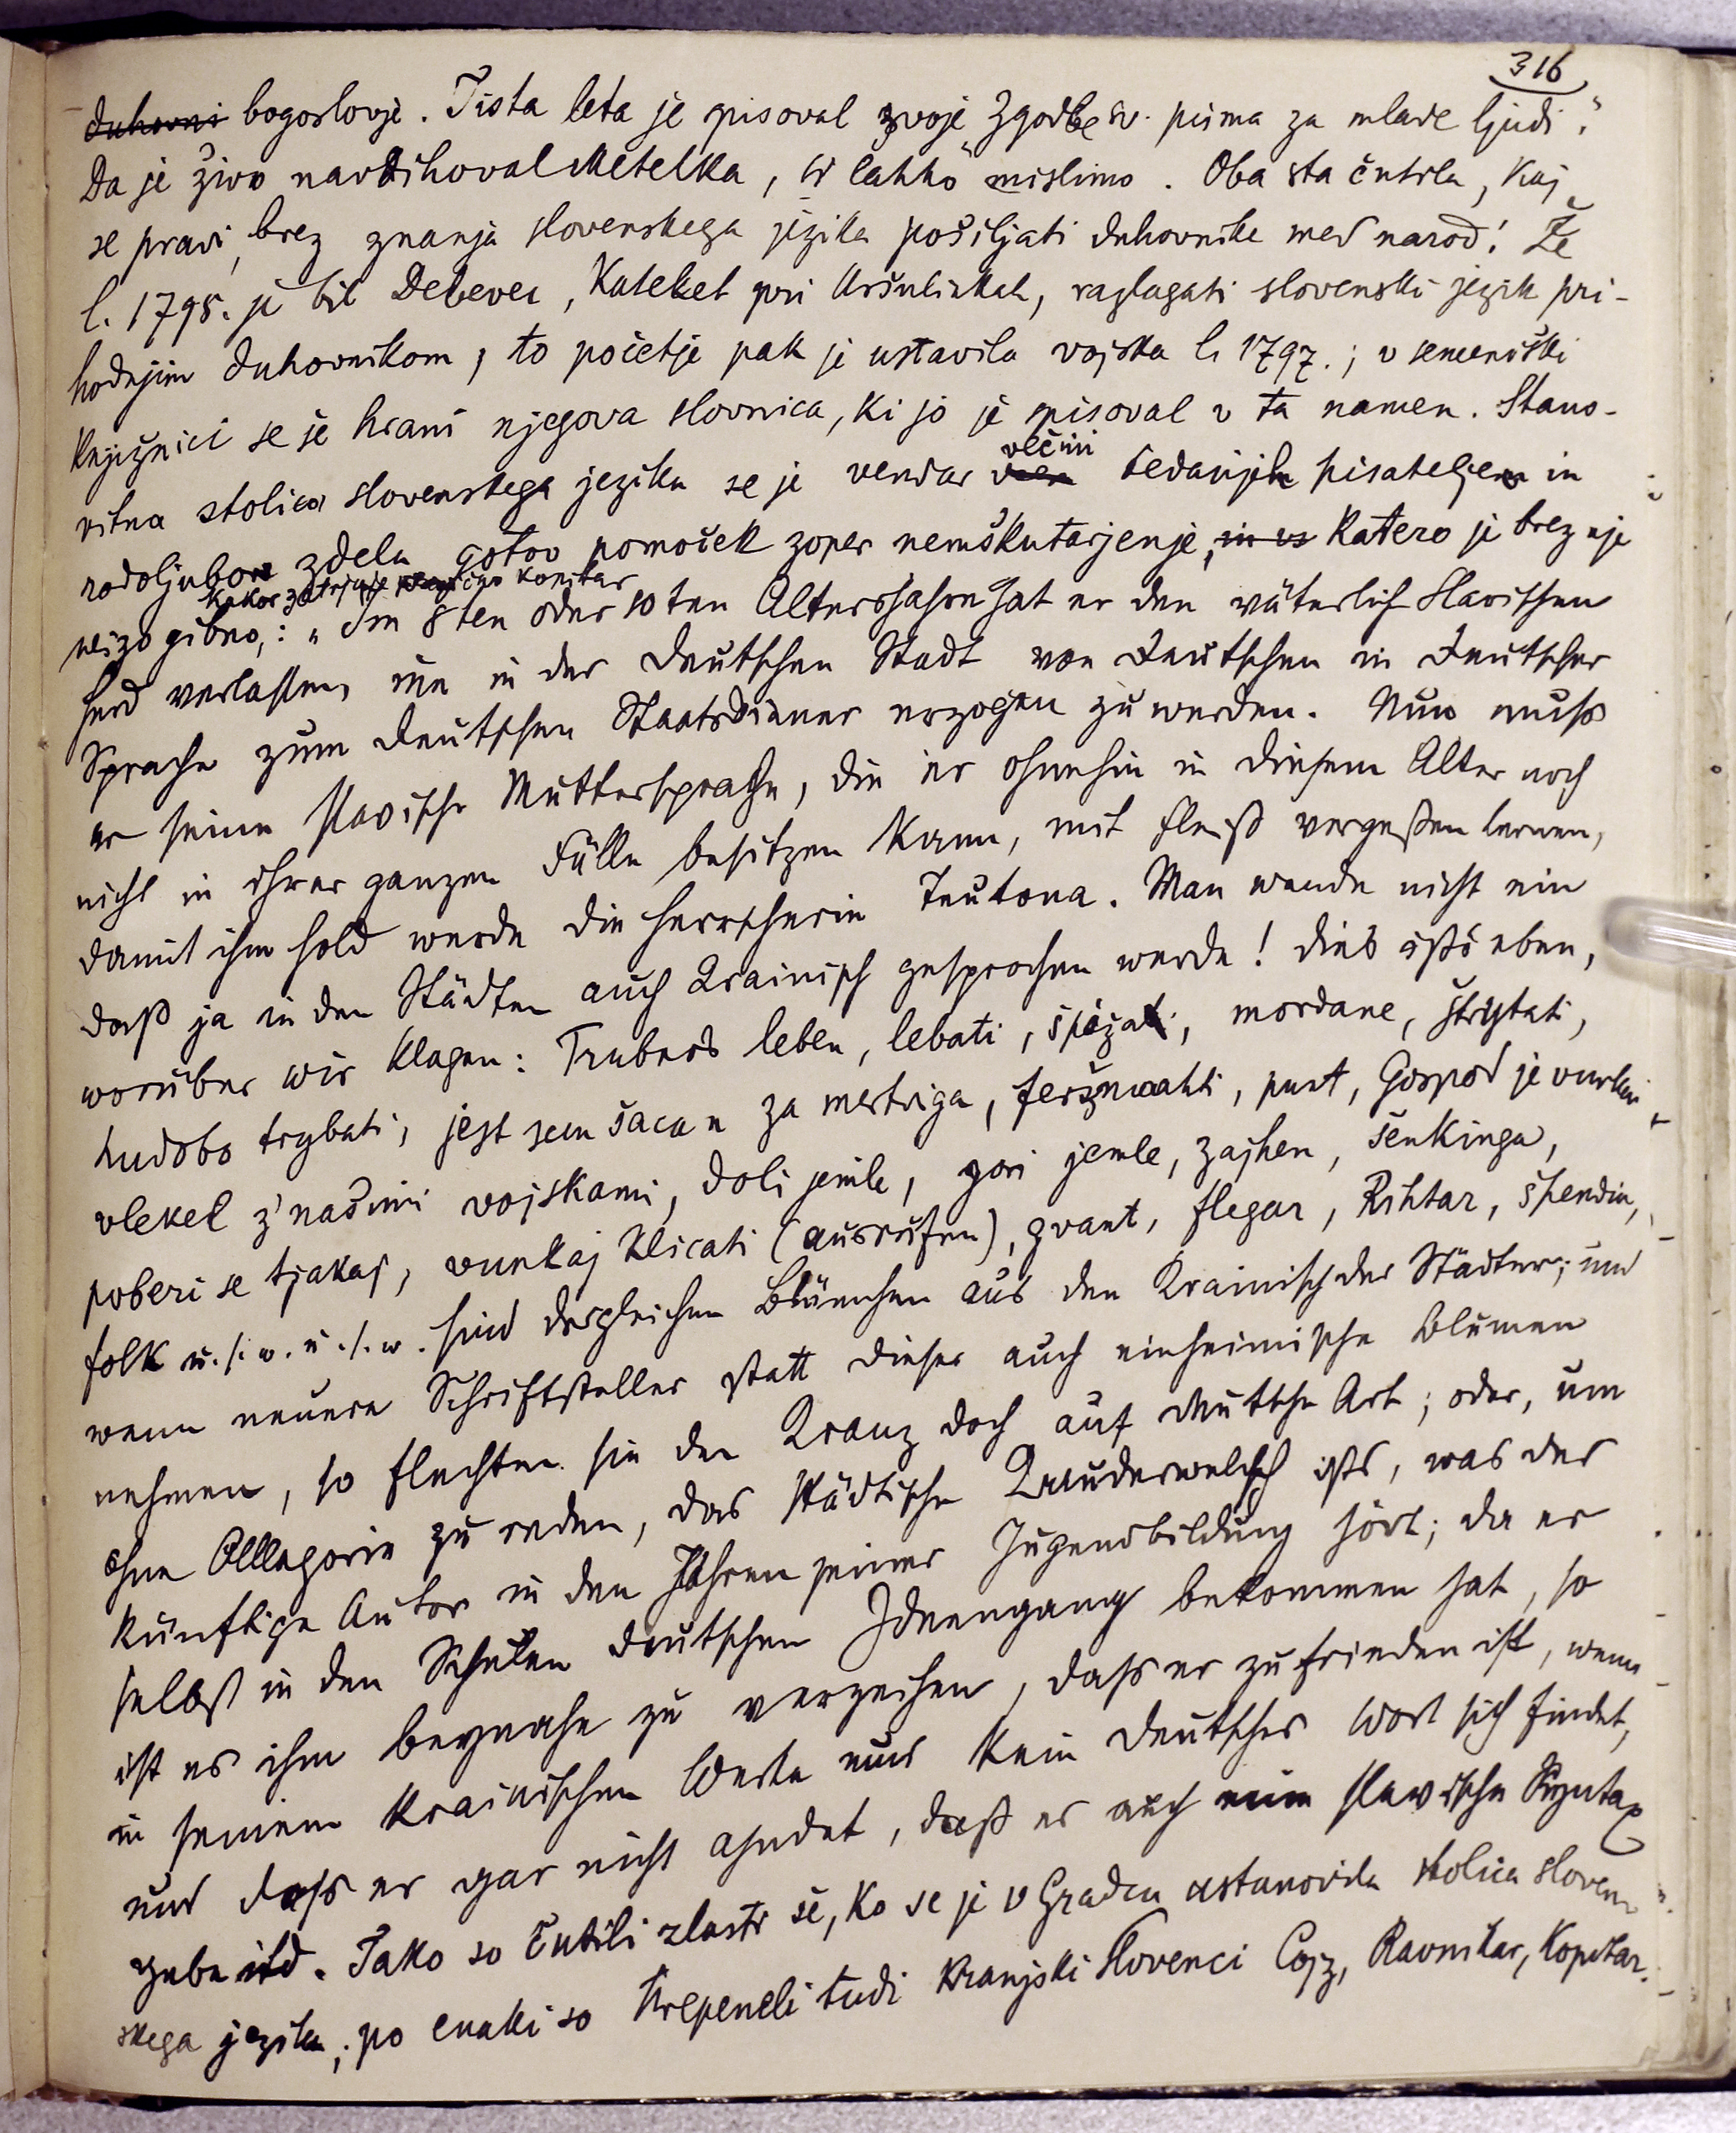 316
duhovni bogoslovje. Tista leta je spisoval svoje „Zgodbe sv. pisma za mlade ljudi".
Da je živo navdihoval Metelka, si lahko mislimo. Oba sta čutila, kaj
se pravi, brez znanja slovenskega jezika pošiljati duhovnike med narod! Že
l. 1795. je bil Debevec, Katehet pri Uršulinkah, razlagati slovenski jezik pri-
hodnjim duhovnikom, to početje pak je ustavila vojska l. 1797.; v semeniški
knjižnici se še hrani njegova slovnica, ki jo je spisoval v ta namen. Stano-
vitna stolica slovenskega jezika se je vendar večini tedanjih pisateljev in
rodoljubov zdela gotov pomoček zoper nemškutarjenje, in vs katero je brez nje
kakor zatrjuje Kopitar
neizogibno,: „Im 8ten oder 10ten Altersjahre hat er den väterlich slavischen
Herd verlassen, um in der deutschen Stadt von Deutschen in deutscher
Sprache zum deutschen Staatsdiener erzogen zu werden. Nun muss
er seine slavische Muttersprache, die er ohnehin in diesem Alter noch
nicht in ihrer ganzen Fülle besitzen kann, mit Fleiß vergeßen lernen,
damit ihm hold werde die Herrscherin Teutona. Man wende nicht ein
daß ja in den Städten auch Krainisch gesprochen werde! dies ists eben,
worüber wir klagen: Trubers leben, lebati, špižati, mordane, štrytati,
hudobo trybati, jest sem šacan za mertviga, feržmahti, punt, Gospod je vunkai
vlekel z' našimi vojskami, doli jemle, gori jemle, zajhen, šenkinga,
poberi se tjakaj, vunkaj klicati (ausrufen), gvant, flegar, Rihtar, špendia,
folk u. s. w. u. s. w. sind dergleichen Blümchen aus den Krainisch der Städter; und
wenn neuere Schriftsteller statt dieser auch einheimische Blumen
nehmen, so flechten sie den Kranz doch auf deutsche Art; oder, um
ohne Allegorie zu reden, das städtische Krauderwelsch ists, was der
künftige Autor in den Jahren seiner Jugendbildung hört; da er
selbst in den Schulen deutschen Ideengang bekommen hat, so
ist es ihm beynahe zu verzeihen, dass er zufrieden ist, wenn
in seinem krainischen Werke nur kein deutsches Wort sich findet,
und dass er gar nicht ahndet, daß es auch eine slavische Syntax
gebe itd. Tako so čutili zlasti še, ko se je v Gradcu ustanovila stolica sloven-
skega jezika; po enaki so hrepeneli tudi kranjski Slovenci Cojz, Ravnikar, Kopitar.